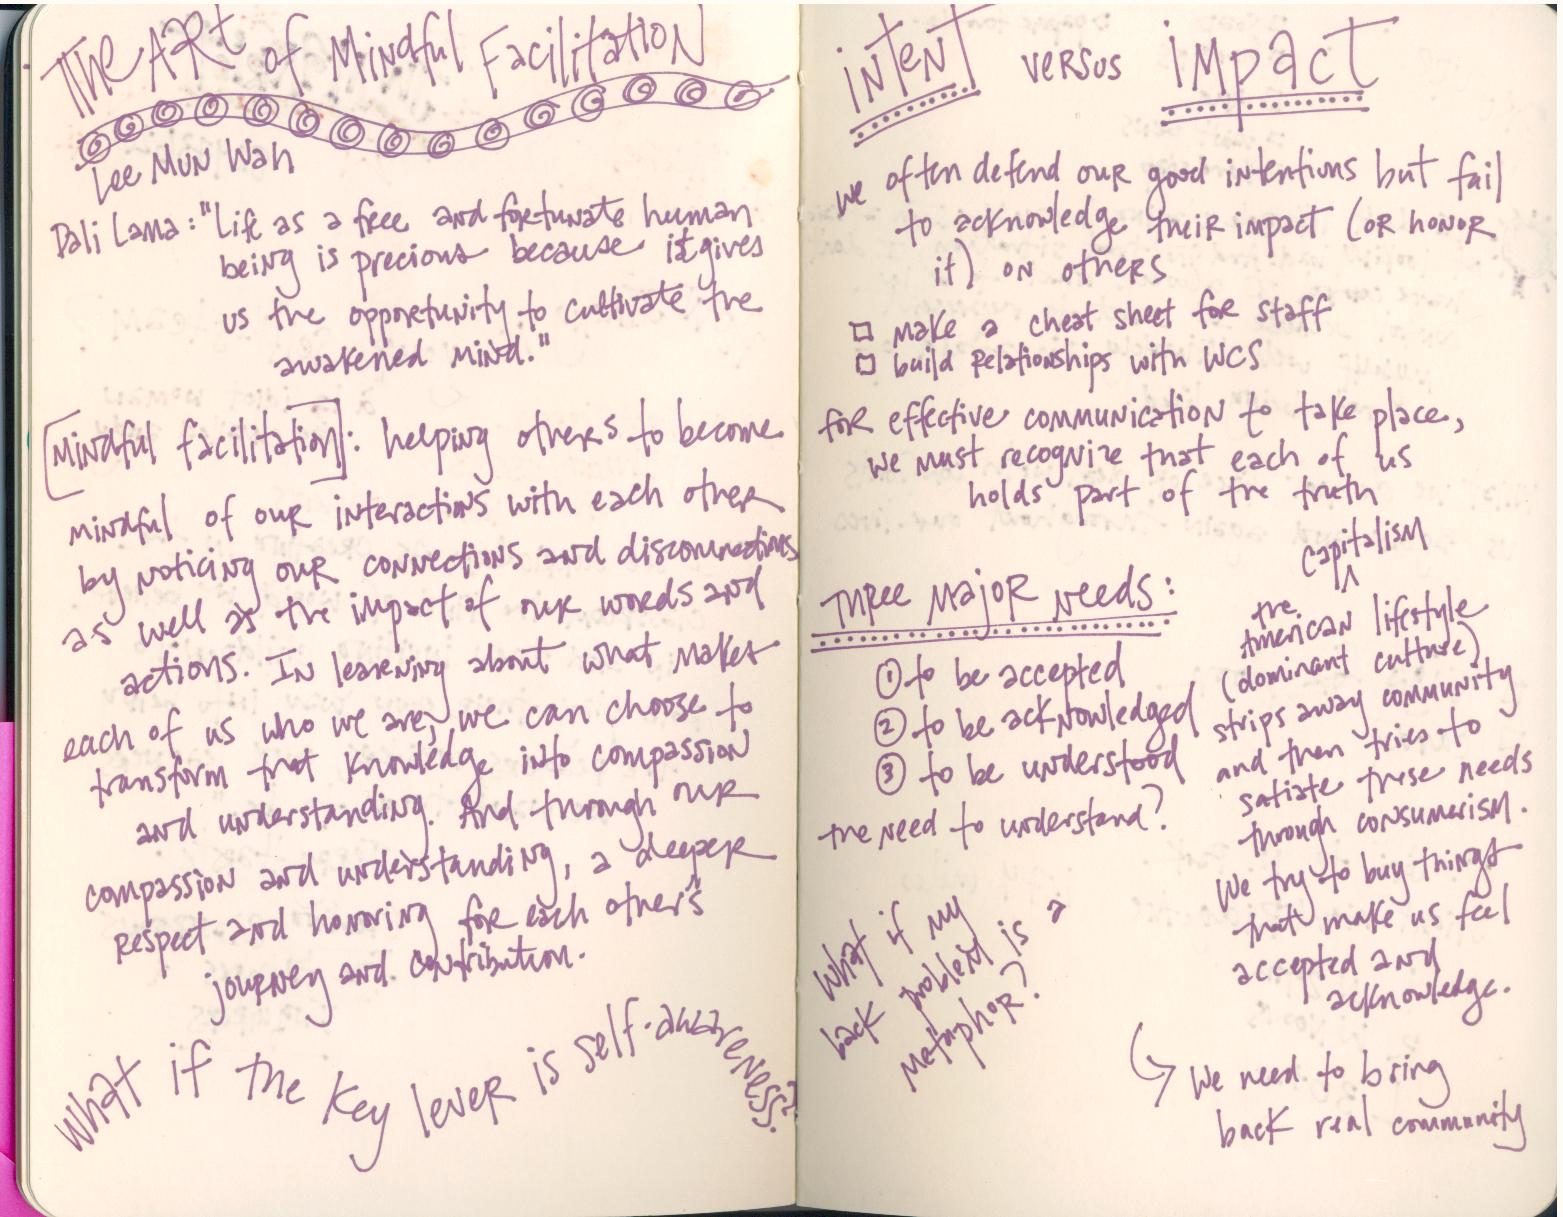 THE ART of Mindful Facilitation
Lee Mun Wah
Dali Lama: "Life as a free and fortunate human
being is precious because it gives
us the opportunity to cultivate the
awakened mind."
[Mindful facilitation]: helping others to become
mindful of our interactions with each other
by noticing our connections and disconnections
as well as the impact of our words and
actions. In learning about what makes
each of us who we are, we can choose to
transform that knowledge into compassion
and understanding. And through our
compassion and understanding, a deeper
respect and honoring for each other's
journey and contribution.
What if the key lever is self-awareness?
intent versus impact
we often defend our good intentions but fail
to acknowledge their impact (or honor
it) on others
□ make a cheat sheet for staff
□ build relationships with WCS
for effective communication to take place,
we must recognize that each of us
holds part of the truth
Three Major Needs:
① to be accepted
② to be acknowledged
③ to be understood
the need to understand?
What if my
back problem is a
metaphor?
capitalism
^
the
American lifestyle
(dominant culture)
strips away community
and then tries to
satiate these needs
through consumerism.
We try to buy things
that make us feel
accepted and
acknowledge.
↳ We need to bring
back real community